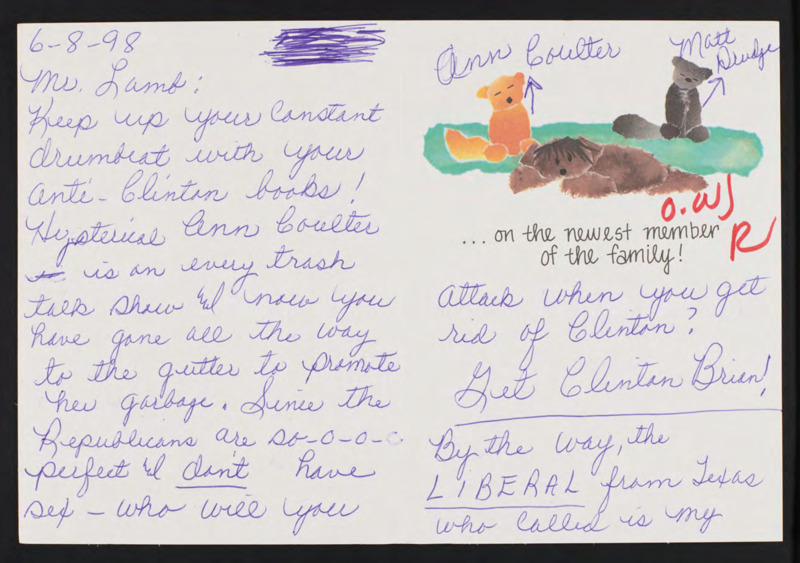 6-8-98
Mr. Lamb:
Keep up your constant
drumbeat with your
anti-Clinton books!
Hysterical Ann Coulter
is on every trash
talk show & now you
have gone all the way
to the gutter to promote
her garbage. Since the
Republicans are so-o-o-o
perfect & don't have
sex - who will you
Ann Coulter
Matt
Drudge
O.W
R
... on the newest member
of the family!
attack when you get
rid of Clinton?
Get Clinton Brian!
By the way, the
LIBERAL from Texas
who called is my